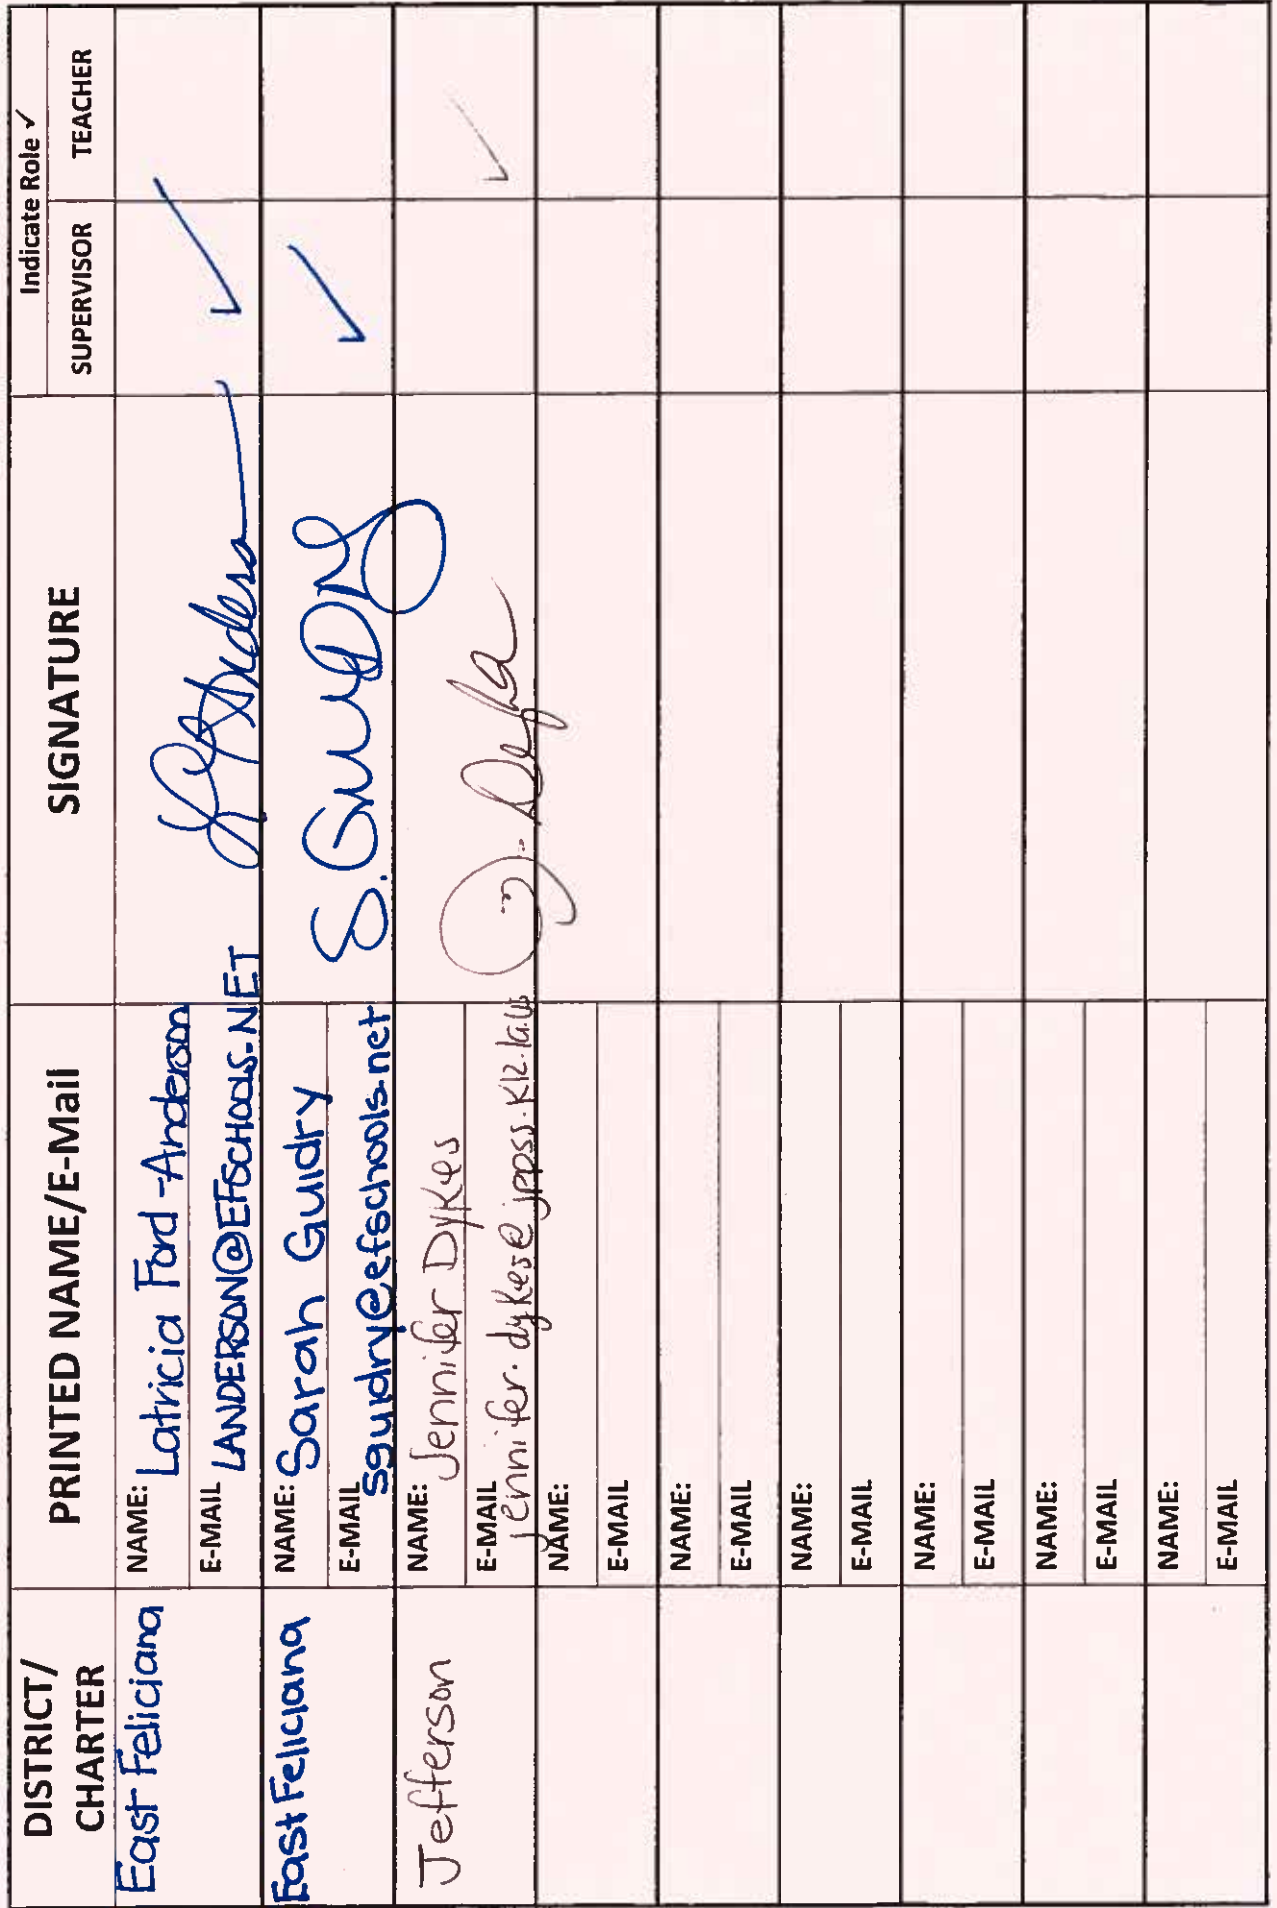 DISTRICT/ CHARTER PRINTED NAME/E-Mail SIGNATURE Indicate Role ✓
SUPERVISOR TEACHER
East Feliciana NAME: Latricia Ford-Anderson ✓
E-MAIL LANDERSON@EFSCHOOLS.NET
East Feliciana NAME: Sarah Guidry S. Guidry ✓
E-MAIL sguidry@efschools.net
Jefferson NAME: Jennifer Dykes ✓
E-MAIL jennifer.dykes@jppss.k12.la.us
NAME:
E-MAIL
NAME:
E-MAIL
NAME:
E-MAIL
NAME:
E-MAIL
NAME:
E-MAIL
NAME:
E-MAIL